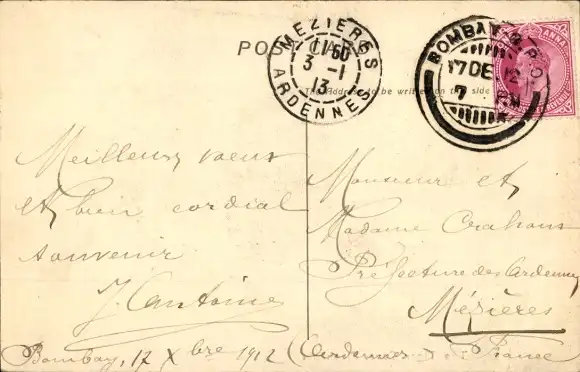 POST CARD
The Address to be written on this side
MEZIERES
11 50
3 -1
13
ARDENNES
BOMBAY
17 DE 12
7
ANNA
Meilleurs voeux
et bien cordial
souvenir
J. Antoine
Bombay, 17 Xbre 1912
Monsieur et
Madame
Préfecture des Ardennes
Mézières
(Ardennes)
France